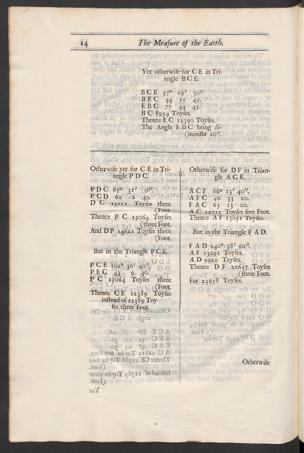 14 The Measure of the Earth.
Yet otherwise for CE in Tri-
angle BCE.
BCE 57° 19' 30".
BEC 44 55 45.
EBC 77 44 45.
BC 8954 Toyses.
Thence EC 12390 Toyses.
The Angle EBC being di-
(minisht 10".
Otherwise yet for CE in Tri-
angle PDC.
PDC 65° 31' 0".
PCD 62 2 40.
DC 13121 Toyses three
(Foot.
Thence PC 15063 Toyses
(three Foot.
And DP Toyses three
(Foot.
But in the Triangle PCE.
PCE 36' 40".
PEC 43 9 30.
PC 15064 Toyses three
(Foot.
Thence CE 12389 Toyses
instead of 12389 Toy-
ses, three Foot.
Otherwise for DF in Trian-
gle ACE.
ACF 66° 13' 40".
AFC 40 33 20.
FAC 63 13 00.
AC 11012 Toyses five Foot.
Thence AF 13051 Toyses.
But in the Triangle FAD.
FAD 140° 38' 50".
AF 13051 Toyses.
AD 9922 Toyses.
Thence DF 21657 Toyses
(three Foot.
For 21658 Toyses.
Otherwise